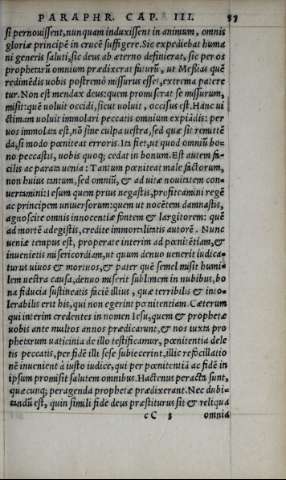 PARAPHR. CAP. III. 57
si pernouissent, nunquam induxissent in animum, omnis
gloriæ principē in crucē suffigere. Sic expediebat huma
ni generis saluti, sic deus ab æterno definierat, sic per os
prophetarū omnium prædixerat futurū, ut Messias quē
redimēdis uobis postremò missurus esset, extrema patere
tur. Non est mendax deus: quem promiserat se missurum,
misit: quē uoluit occidi, sicut uoluit, occisus est. Hanc ui
ctimam uoluit immolari peccatis omnium expiādis: per
uos immolata est, nō sine culpa uestra, sed quæ sit remittē
da, si modo pœniteat erroris. Ita fiet, ut quod omniū bo-
no peccastis, uobis quoq; cedat in bonum. Est autem fa-
cilis ac parata uenia: Tantum pœniteat male factorum,
non huius tantum, sed omniū, & ad uitæ nouitatem con-
uertamini: Iesum quem prius negastis, profitemini regē
ac principem uniuersorum: quem ut nocētem damnastis,
agnoscite omnis innocentiæ fontem & largitorem: quē
ad mortē adegistis, credite immortalitatis autorē. Nunc
ueniæ tempus est, properate interim ad pœnitētiam, &
inuenietis misericordiam, ut quum denuo uenerit iudica-
turus uiuos & mortuos, & pater quē semel misit humi-
lem uestra causa, denuo miserit sublimem in nubibus, bo
na fiducia sustineatis faciē illius, quæ terribilis & into-
lerabilis erit his, qui non egerint pœnitentiam. Cæterum
qui interim credentes in nomen Iesu, quem & prophetæ
uobis ante multos annos prædicarunt, & nos iuxta pro
phetarum uaticinia de illo testificamur, pœnitentia dele
tis peccatis, per fidē illi sese subiecerint, illic refocillatio
nē inuenient à iusto iudice, qui per pœnitentiā ac fidē in
ipsum promisit salutem omnibus. Hactenus peracta sunt,
quæcunq; peragenda prophetæ prædixerant. Nec dubi-
tandū est, quin simili fide deus præstiturus sit & reliqua
cC 3 omnia